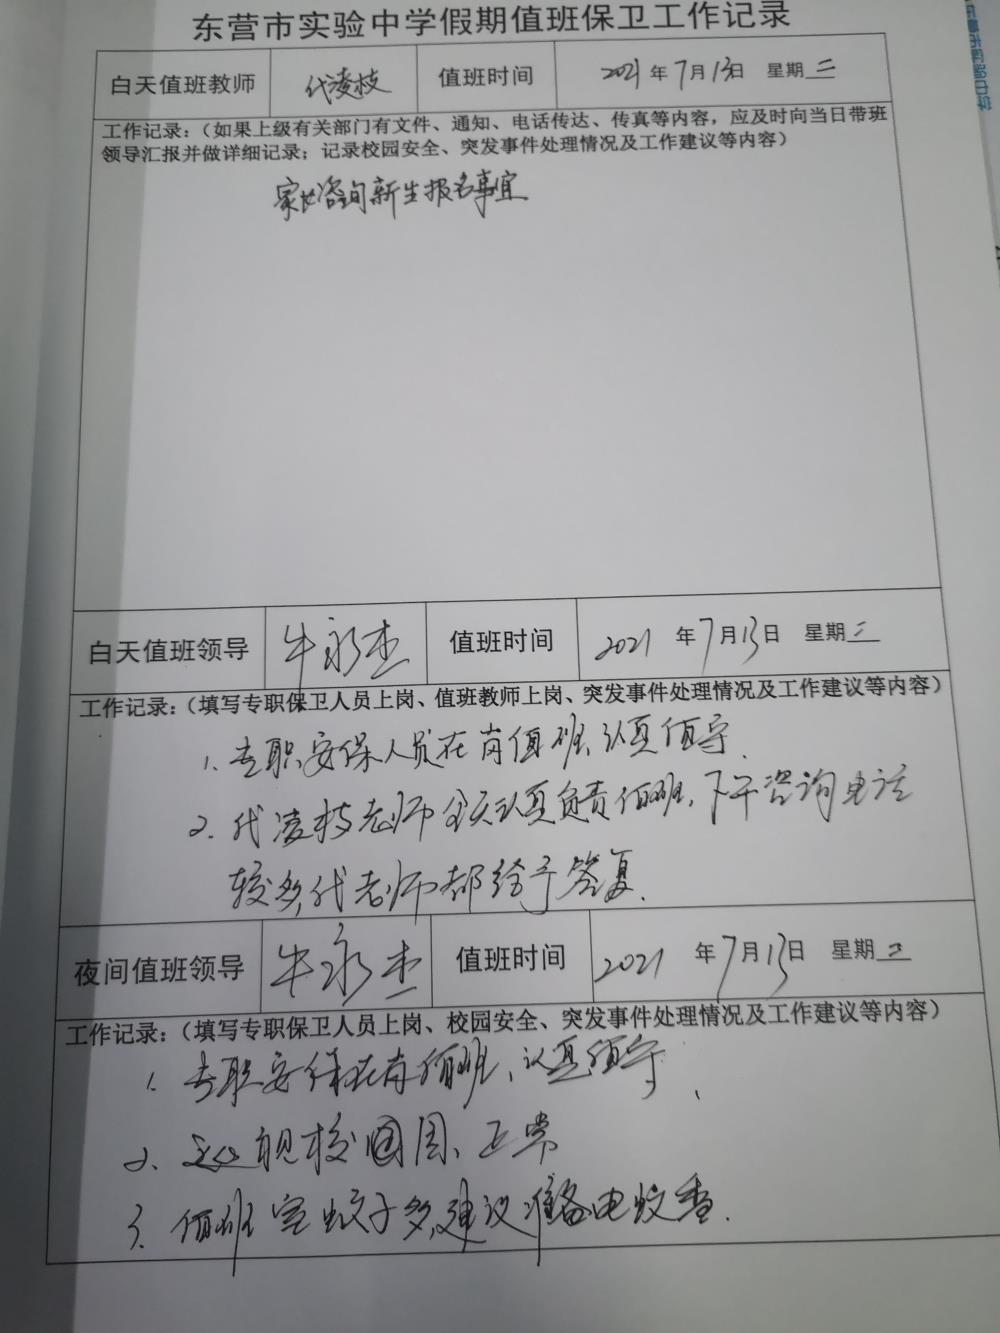 东营市实验中学假期值班保卫工作记录
白天值班教师 代凌枝 值班时间 2021年7月13日 星期二
工作记录:（如果上级有关部门有文件、通知、电话传达、传真等内容，应及时向当日带班
领导汇报并做详细记录；记录校园安全、突发事件处理情况及工作建议等内容）
家长咨询新生报名事宜
白天值班领导 牛永杰 值班时间 2021年7月13日 星期二
工作记录:（填写专职保卫人员上岗、值班教师上岗、突发事件处理情况及工作建议等内容）
1. 专职安保人员在岗值班、认真值守.
2. 代凌枝老师全天认真负责值班，下午咨询电话
较多，代老师都给予答复.
夜间值班领导 牛永杰 值班时间 2021年7月13日 星期二
工作记录:（填写专职保卫人员上岗、校园安全、突发事件处理情况及工作建议等内容）
1. 专职安保在岗值班、认真值守.
2. 巡视校园周、正常
3. 值班室蚊子多,建议准备电蚊香.
东营市实验中学